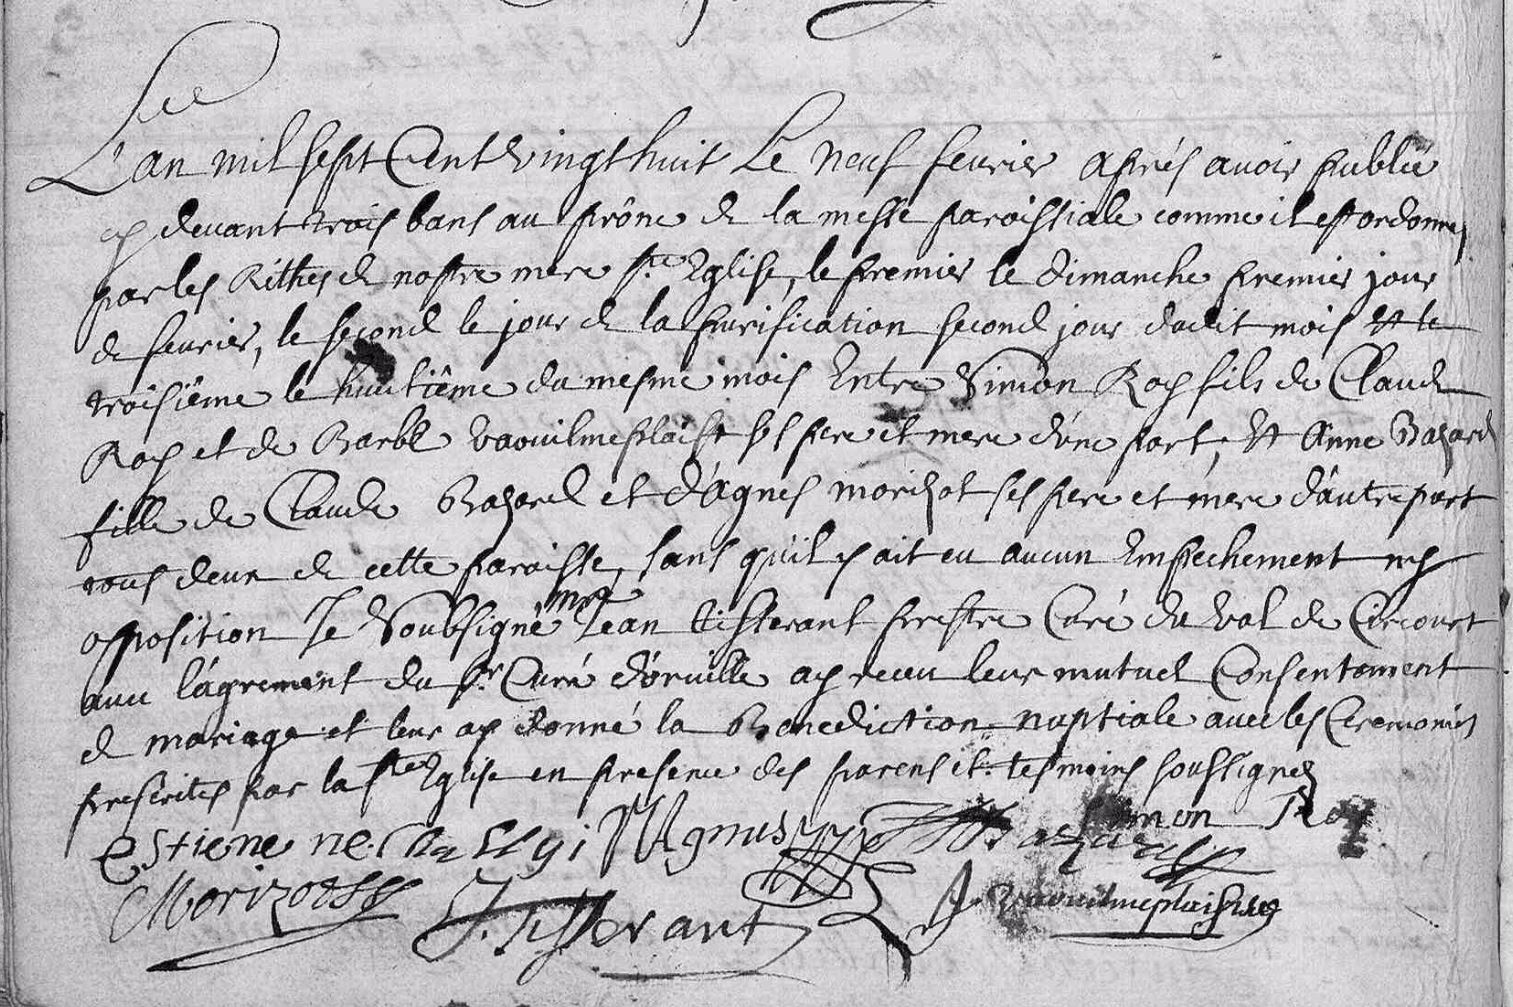 L'an mil sept Cent vingt huit Le neuf fevrier aprés avoir publié
cy devant trois bans au prône de la messe paroissiale comme il est ordonné
par les Rithes de nostre mere Ste Eglise, le premier le dimanche premier jour
de fevrier, le second le jour de la purification second jour dudit mois et le
troisiême le huitiême du mesme mois Entre Simon Roy fils de Claude
Roy et de Barbe vaouilmeplaist ses pere et mere d'une part, et Anne Bazard
fille de Claude Bazard et d'Agnes morizot ses pere et mere d'autre part
tous deux de cette paroisse, sans qu'il y ait eu aucun Empechement ny
opposition Je Soubsigné mre Jean tisserant prestre Curé du val de Circourt
avec l'agrement du Sr Curé d'orville ay receu leur mutuel Consentement
de mariage et leur ay donné la Benediction nuptiale avec les Ceremonies
prescrites par la Ste Eglise en presence des parens et tesmoins soussignez
Estiene Mignus Bazard Simon Roy
Morizot J. Tisserant J. vaouilmeplaist